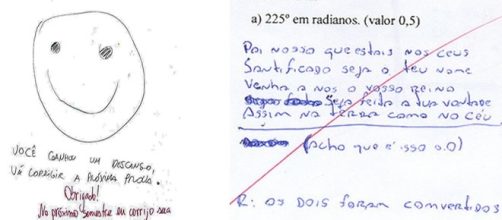 VOCÊ GANHOU UM DESCANSO,
VÁ CORRIGIR A PRÓXIMA PROVA.
Obrigado!
No próximo semestre eu corrijo sua
a) 225º em radianos. (valor 0,5)
Pai nosso que estais nos ceus
Santificado seja o teu nome
Venha a nos o vosso reino
Seja feita a tua vontade
Assim na terra como no céu
(Acho que é isso o.O)
R: os dois foram convertidos